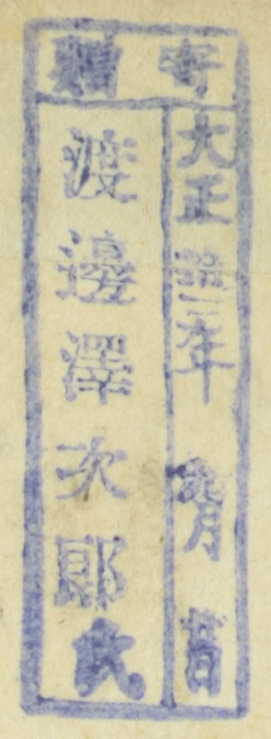 寄贈
大正 三年 月 日
渡邊澤次郎氏